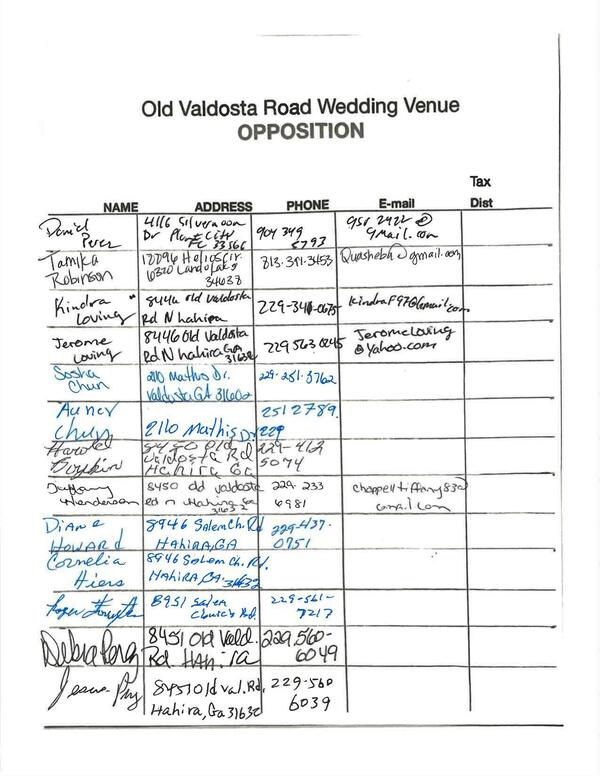 Old Valdosta Road Wedding Venue
OPPOSITION
Tax
NAME ADDRESS PHONE E-mail Dist
Daniel 4116 Silvermoon 904 349 958 2422 @
Perez Dr Plant City 5793 gmail.com
FL 33566
Tamika Helios Cir. 813.391.3453 Quashebh@gmail.com
Robinson Land O Lakes
34638
Kindra 8446 old Valdosta 229-340-0675 KindraF97@gmail.com
Loving Rd N hahira
Jerome 8446 Old Valdosta 229 563 0245 Jeromeloving
Loving Rd N hahira GA @yahoo.com
31632
Sasha 2110 Mathis Dr. 229-251-3762
Chun Valdosta GA 31602
2512789.
Chun 2110 Mathis Dr 229
Harold 8450 Old 229-412
Boykin Valdosta Rd 5074
Hahira Ga
Tiffany 8450 old valdosta 229-233 chappelltiffany83@
Henderson rd n Hahira Ga 6981 gmail.com
31632
Diane 8946 Salem Ch. Rd 229-437-
Howard Hahira, GA 0751
Cornelia 8946 Salem Ch. Rd.
Hiers Hahira, GA. 31632
Roger 8951 Salem 229-561-
Church Rd. 7217
Debra Perez 8451 Old Vald. 229,560-
Rd. Hahira 6049
8451 Old Val. Rd, 229-560
Hahira, Ga 31632 6039